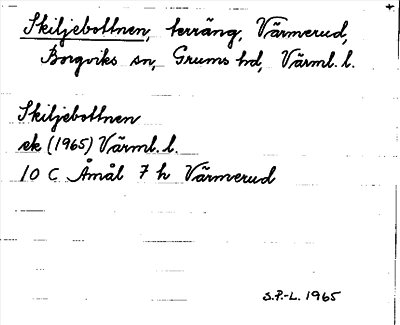 Skiljebottnen, terräng, Värmerud,
Borgviks sn, Grums hd, Värml. l.
Skiljebottnen
ek (1965) Värml. l.
10 C Åmål 7 h Värmerud
S.P.-L. 1965